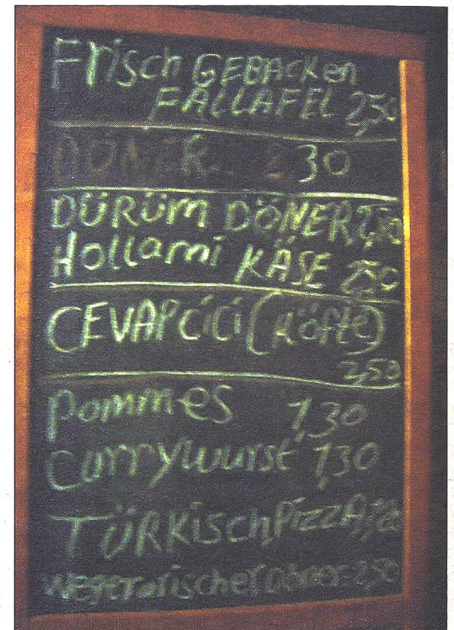 Frisch GEBACKEN
FALLAFEL 2,50
DÖNER 2,30
DÜRÜM DÖNER
Hollami KÄSE 2,50
CEVAPCiCi (Köfte)
2,50
pommes 1,30
Currywurst 1,30
TÜRKiSchPizzA
Wegetarischer Döner 2,50